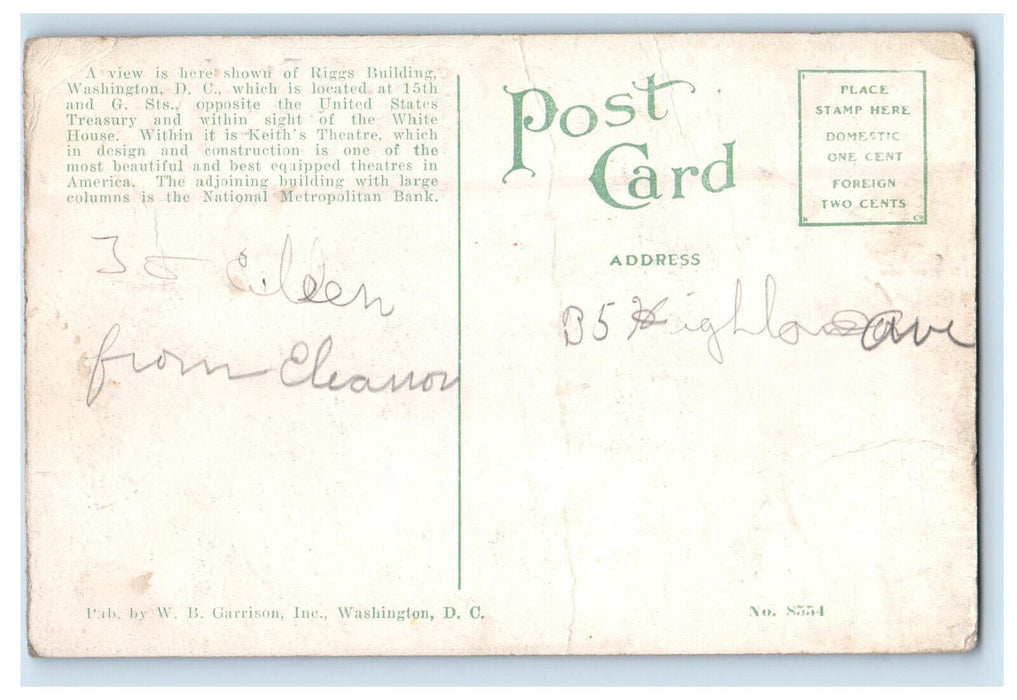 A view is here shown of Riggs Building,
Washington, D. C., which is located at 15th
and G. Sts., opposite the United States
Treasury and within sight of the White
House. Within it is Keith's Theatre, which
in design and construction is one of the
most beautiful and best equipped theatres in
America. The adjoining building with large
columns is the National Metropolitan Bank.
To Eileen
from Eleanor
Pub. by W. B. Garrison, Inc., Washington, D. C.
Post
Card
PLACE
STAMP HERE
DOMESTIC
ONE CENT
FOREIGN
TWO CENTS
ADDRESS
35 Highland Ave
No. 8554